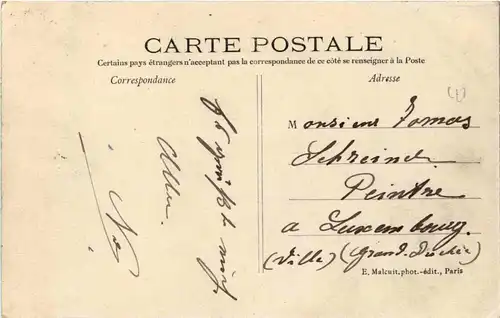 CARTE POSTALE
Certains pays étrangers n'acceptent pas la correspondance de ce côté se renseigner à la Poste
Correspondance
Adresse
Monsieur Tomas
Schreind
Peintre
a Luxembourg
(Ville) (Grand-Duché)
E. Malcuit. phot.-édit., Paris